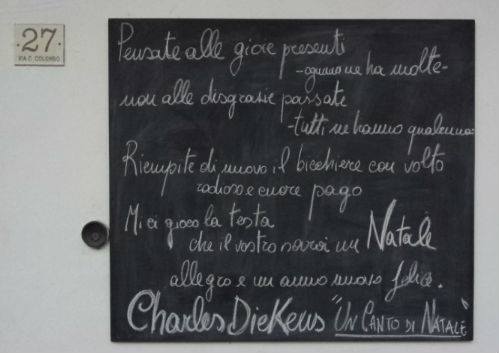 27
VIA C. COLOMBO
Pensate alle gioie presenti
-ognuno ne ha molte-
non alle disgrazie passate
-tutti ne hanno qualcuna-
Riempite di nuovo il bicchiere con volto
radioso e cuore pago
Mi ci gioco la testa
che il vostro sarà un Natale
allegro e un anno nuovo felice.
Charles Dickens "UN CANTO DI NATALE"